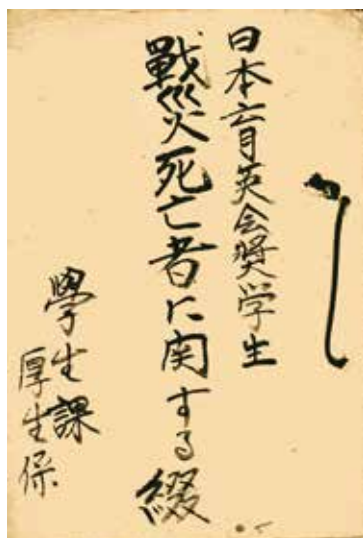 日本育英会奨学生
戰災死亡者に関する綴
學生課
厚生係